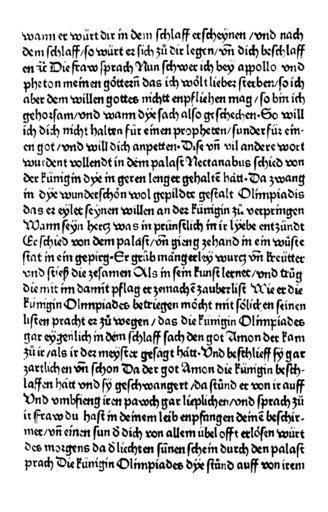 wann er würt dir in dem schlaff erscheynen / vnd nach
dem schlaff / so würt er sich zů dir legen / vñ dich beschlaff
en Die fraw sprach Nun schwer ich bey appollo / vnd
pheton meinen göttern das ich wölt lieber sterben / so ich
aber dem willen gottes nichtt enpfliehen mag / so bin ich
gehorsam / vnd wann dÿe sach also geschehen · So will
ich dich nicht halten für einen propheten / sunder für ein-
en got / vnd will dich anpetten · Dise vñ vil andere wort
wurdent vollendt in dem palast Nectanabus schied von
der künigin dÿe in geren lenger gehaltē hätt · Da zwang
in dÿe wunderschön wol gepildte gestalt Olimpiadis
das er eylet seynen willen an der künigin zů verpringen
Wann seyn hertz was in prünstlich in ir lyebe entzündt
Er schied von dem palast / vñ gieng zehand in ein wüste
stat in ein gepirg · Er grůb mangerley wurcz vñ kreütter
vnd stieß die zesamen Als in sein kunst lernet / vnd trůg
die mit im damit pflag er zemachē zauberlist Wie er die
künigin Olimpiades betriegen möcht mit sölichen seinen
listen pracht er zů wegen / das die künigin Olimpiades
gar eygenlich in dem schlaff sach den got Amon der kam
zů ir / als ir der meyster gesagt hätt · Vnd beschlieff sy gar
zartlichen vñ schon Da der got Amon die künigin besch-
laffen hätt vnd sy geschwangert / da stůnd er von ir auff
Vnd vmbfieng iren pawch gar lieplichen / vnd sprach zů
ir Fraw du hast in deinem leib enpfangen deinē beschir-
mer / vñ einen sun d̄ dich von allem übel offt erlösen würt
des morgens da d̄ liechten sunen schein durch den palast
prach Die künigin Olimpiades dÿe stůnd auff von irem